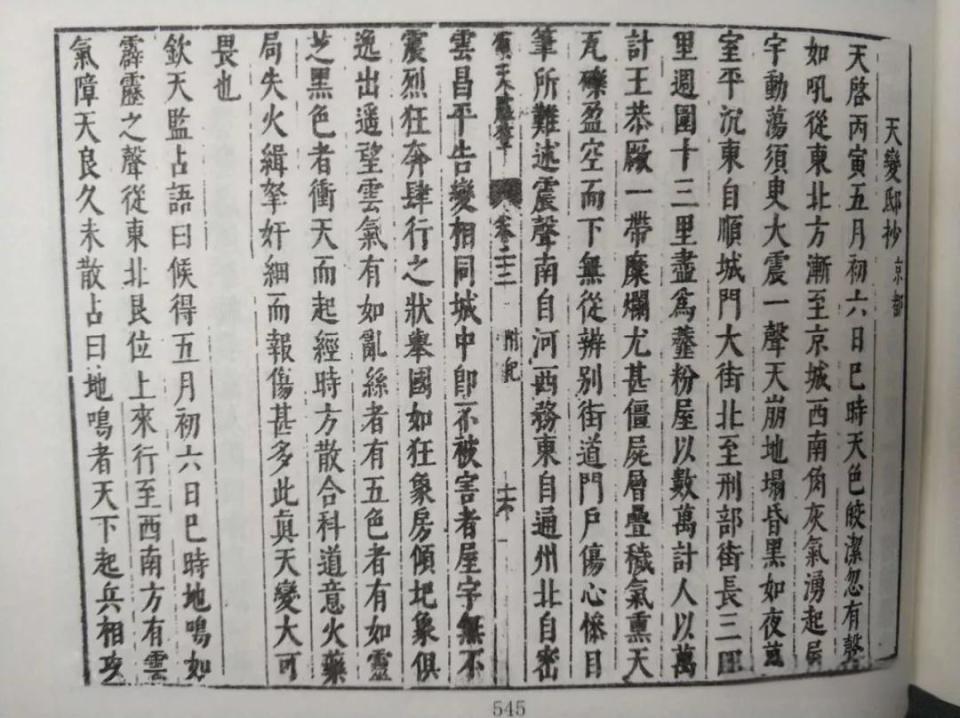 天變邸抄 京都
天啓丙寅五月初六日巳時天色皎潔忽有聲
如吼從東北方漸至京城西南角灰氣湧起屋
宇動蕩須臾大震一聲天崩地塌昏黑如夜萬
室平沉東自順城門大街北至刑部街長三四
里週圍十三里盡爲虀粉屋以數萬計人以萬
計王恭厰一帶糜爛尤甚僵屍層疊穢氣熏天
瓦礫盈空而下無從辨別街道門戶傷心慘目
筆所難述震聲南自河西務東自通州北自密
卷二十二 附紀
雲昌平告變相同城中卽不被害者屋宇無不
震烈狂奔肆行之狀舉國如狂象房傾圯象俱
逸出遥望雲氣有如亂絲者有五色者有如靈
芝黑色者衝天而起經時方散合科道意火藥
局失火緝拏奸細而報傷甚多此真天變大可
畏也
欽天監占語曰候得五月初六日巳時地鳴如
霹靂之聲從東北艮位上來行至西南方有雲
氣障天良久未散占曰地鳴者天下起兵相攻
545